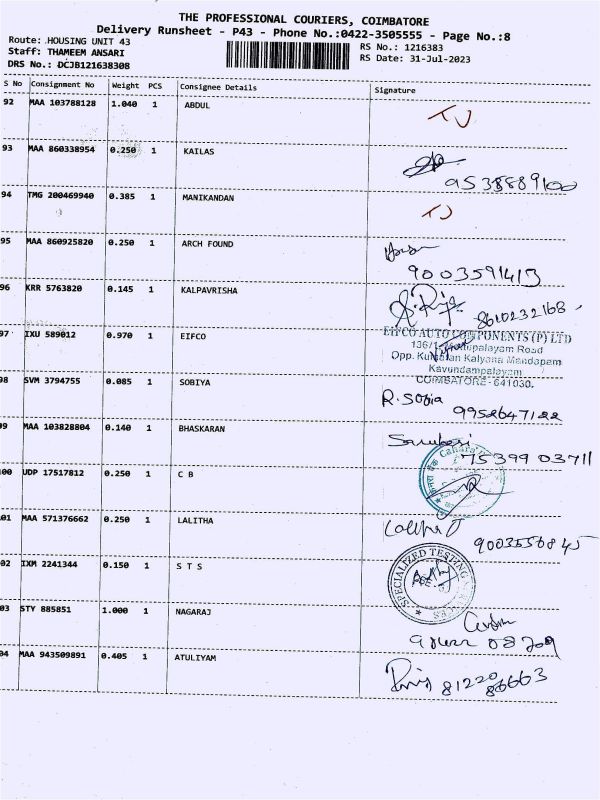 THE PROFESSIONAL COURIERS, COIMBATORE
Delivery Runsheet - P43 - Phone No.:0422-3505555 - Page No.:8
Route: HOUSING UNIT 43
RS No.: 1216383
Staff: THAMEEM ANSARI
RS Date: 31-Jul-2023
DRS No.: DCJB121638308
S No Consignment No Weight PCS Consignee Details Signature
92 MAA 103788128 1.040 1 ABDUL
93 MAA 860338954 0.250 1 KAILAS
9538889100
94 TMG 200469940 0.385 1 MANIKANDAN
95 MAA 860925820 0.250 1 ARCH FOUND
9003591413
96 KRR 5763820 0.145 1 KALPAVRISHA
8610232168
97 IXU 589012 0.970 1 EIFCO
EIFCO AUTO COMPONENTS (P) LTD
136/1 Road
Opp. Kalyana Mandapam
Kavundampalayam
COIMBATORE - 641030.
98 SVM 3794755 0.085 1 SOBIYA
R. Sobia
9952647122
99 MAA 103828804 0.140 1 BHASKARAN
75399 03711
100 UDP 17517812 0.250 1 C B
01 MAA 571376662 0.250 1 LALITHA
Lalitha
02 IXM 2241344 0.150 1 S T S
SPECIALIZED TESTING
03 STY 885851 1.000 1 NAGARAJ
04 MAA 943509891 0.405 1 ATULIYAM
81220
86663